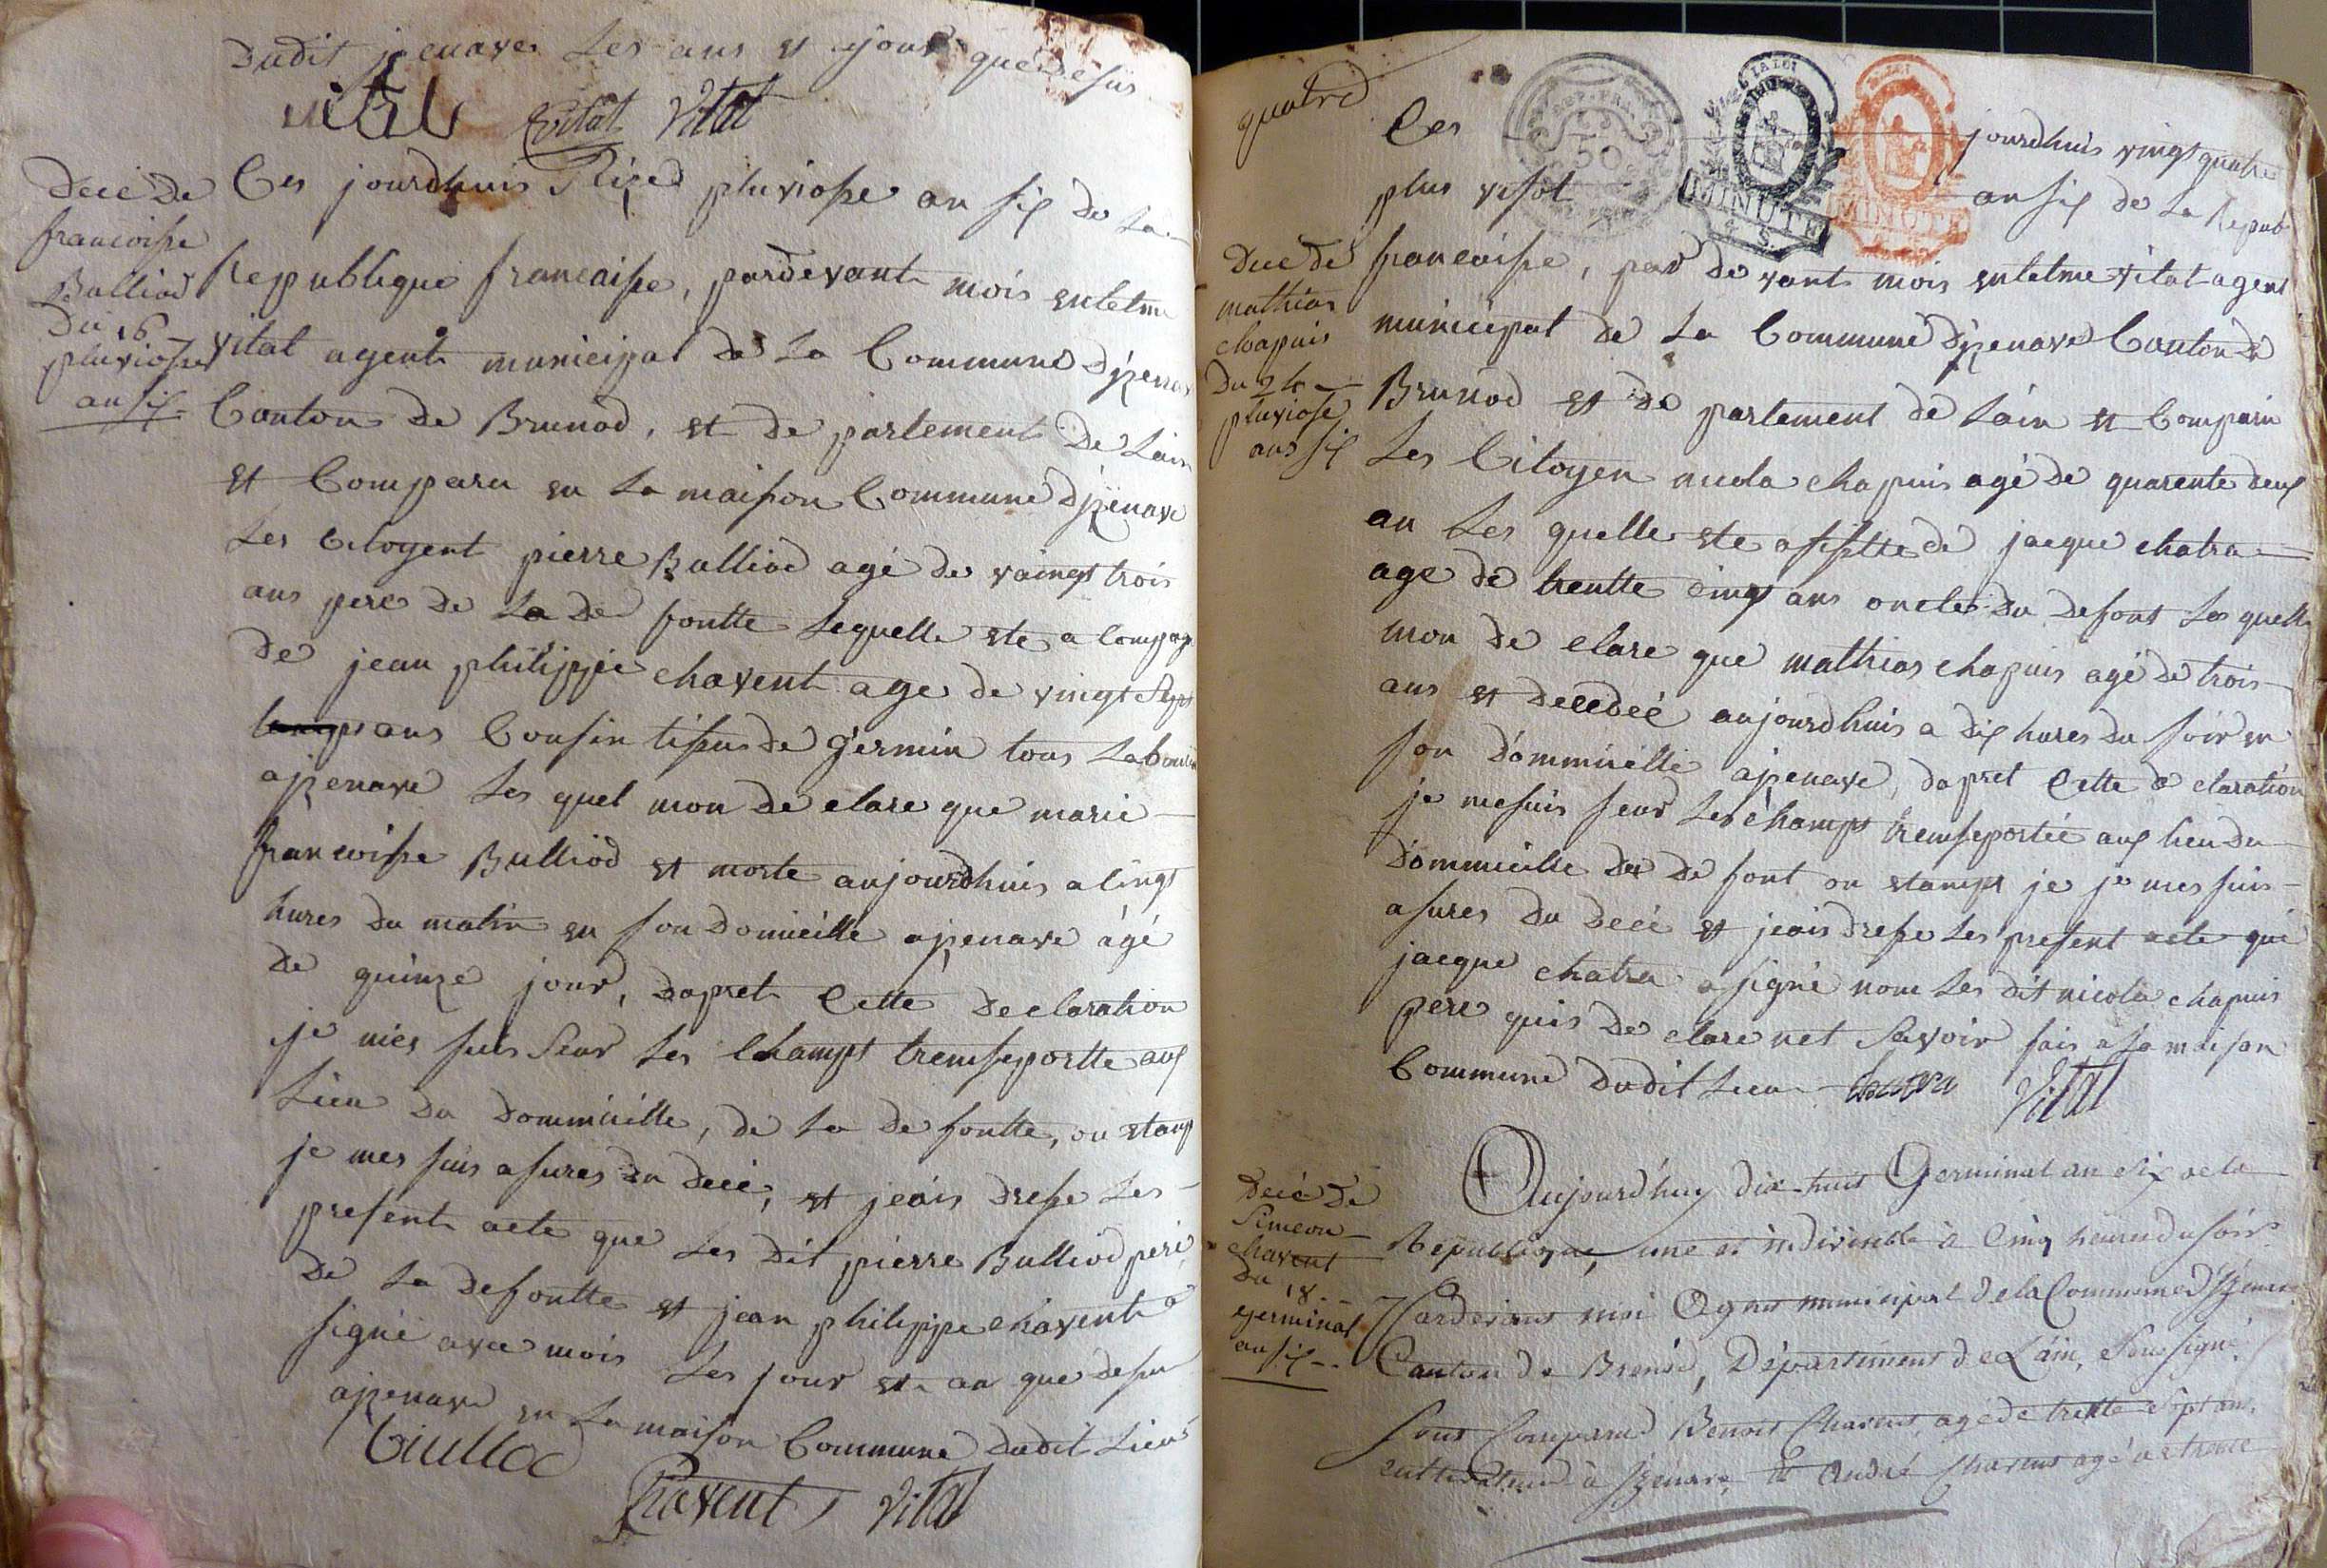 dudit izenave les ans et jour que desus
vital vital Vital
decé de
francoisse
Bulliod
du 16
pluviosse
an six
Ces jourdhuis Size pluviosse an six de la
Republique francaisse, pardevant mois entelme
vital agent municipal de la Commune dizenav
Canton de Brunod, et de partement de Lain
et Comparu en la maison Commune dizenave
les Citoyent pierre Bulliod agé de vaingt trois
ans pere de la de fontte lequelle ete a Compag
de jean philippe chavent age de vingt Sept
ans Cousin tissus de germin tous Labour
a izenave les quel mon de clare que marie
francoisse Bulliod et morte aujourdhuis a Cingt
hures du matin en son domicille a izenave ágé
de quinze jour, dapret Cette declaration
je mes suis Seur les Champt tremsportte aux
Lieu du dommicille, de la de fontte, ou etamp
je mes suis asures du decé, et jeais dresse les
present acte que les dit pierre Bulliod peré
de la defontte et jean philippe chavent a
signé avec mois les jour et an que desu
a izenave en la maison Commune dudit Lieu
Bulliod
Chavent Vital
quatre
REP. FRA.
50
LA LOI
MINUTE
LA LOI
MINUTE
Ces jourdhuis vingt quatre
pluvisot an six de la Repub
decé de
mathias
chapuis
du 24
pluviose
ans six
francaisse, par de vant mois entelme vital agent
municipal de la Commune dizenave Canton de
Brunod et de partement de Lain et Comparu
les Citoyen nicola chapuis agé de quarente deux
an les quelle ete assistte de jacque chatra
age de trentte cinq ans oncles du defont les quell
mon de clare que mathias chapuis agé de trois
ans et decedéé aujourdhuis a dix hures du soir en
son dommicille a izenave, dapret Cette de claration
je mesuis seur les champt tremseportée aux lieu du
dommicille du de font ou etampt je je mes suis
asures du decé et jeais dresse les present acte que
jacque chatra a signé nom les dit nicola chapuis
pere quis de clare net Savoir fais a la maison
Commune dudit Lieu Chatra Vital
decé de
Simeon
chavent
du 18
germinal
an six
Aujourd'huy dix-huit Germinal an Six de la
Republique, une et indivisible à Cinq heures du soir
Pardevant moi Agent municipal de la Commune d'Izenave
Canton de Brenod, Département de Láin, Soussigné
Sont Comparus Benoit Chavent, agé de trente Sept ans,
cultivateur à Izenave, et André Chavent agé de trente